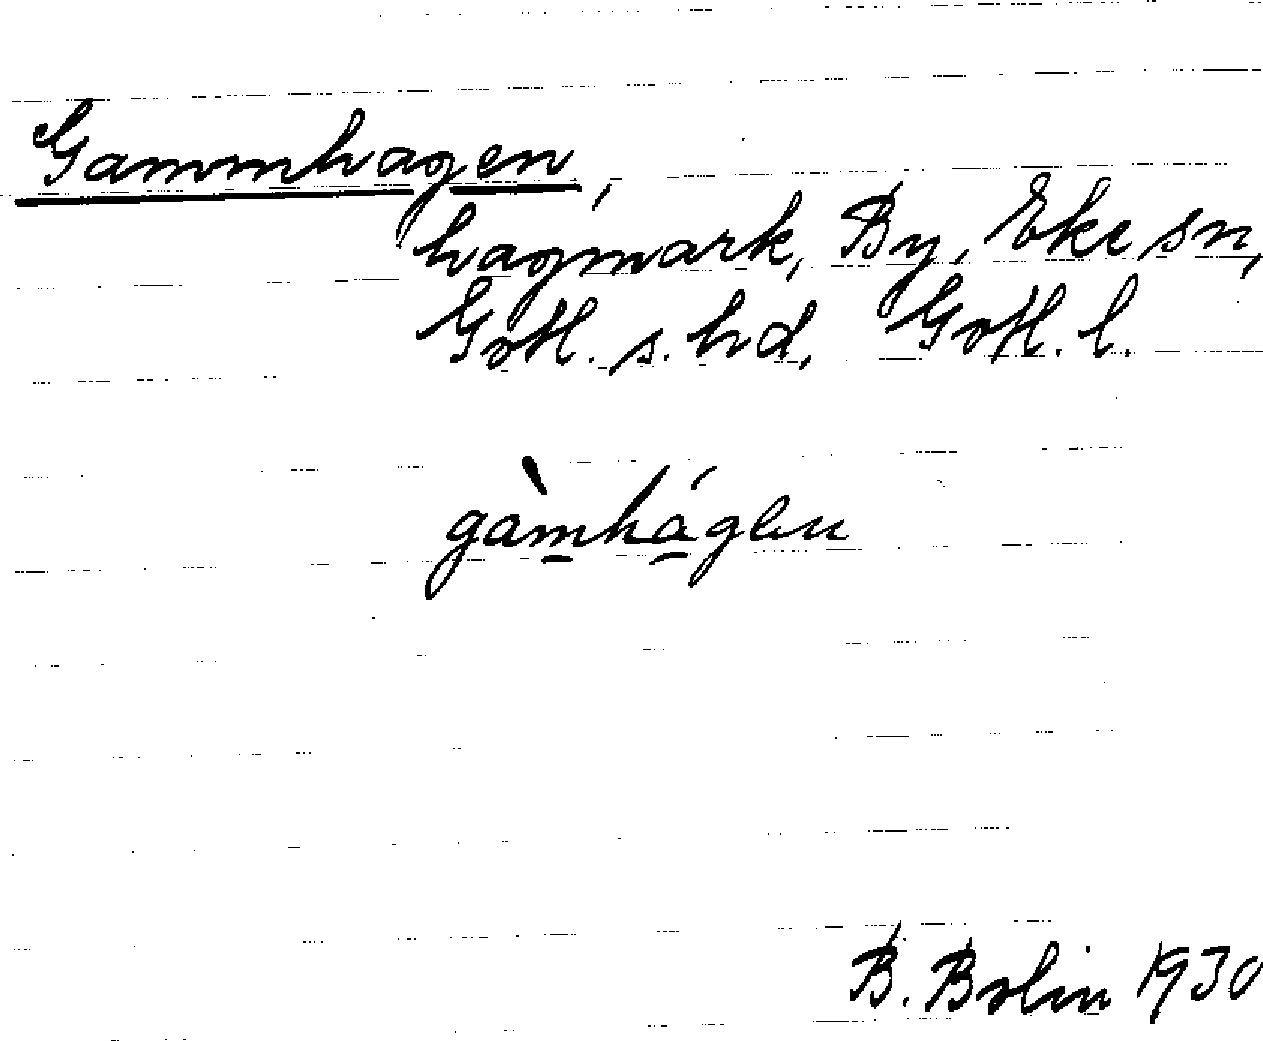 Gammhagen,
hagmark, By, Eke sn,
Gotl. s. hd, Gotl. l.
gàm̲há̲gen
B. Bolin 1930